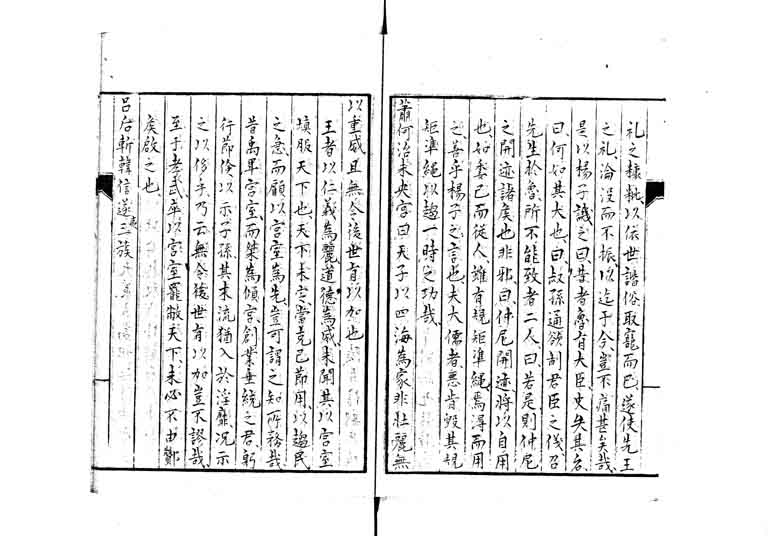 礼之糠粃以依世諧俗取寵而已遂使先王
之礼淪没而不振以迄于今豈不痛甚矣哉
是以楊子譏之曰昔者魯有大臣史失其名
曰何如其大也曰叔孫通欲制君臣之儀召
先生於魯所不能致者二人曰若是則仲尼
之開迹諸矦也非邪曰仲尼開迹將以自用
也如委己而從人雖有規矩準繩焉淂而用
之善乎楊子之言也夫大儒者悪肯毀其規
矩準繩以趨一時之功哉
蕭何治未央宮曰天子以四海為家非壮麗無
以重威且無令後世有以加也
王者以仁義為麗道德為威未聞其以宮室
填服天下也天下未定當克己節用以趨民
之急而顧以宮室為先豈可謂之知所務哉
昔禹卑宮室而桀為傾宮創業垂統之君躬
行節儉以示子孫其末流猶入於淫靡况示
之以侈乎乃云無令後世有以加豈不謬哉
至于孝武卒以宮室罷敝天下未必不由酇
矦啟之也
吕后斬韓信遂夷三族